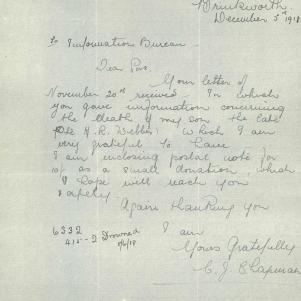 Brinkworth
December 5th 1918
To Information Bureau
Dear Sir,
Your letter of
November 20th received. In which
you gave information concerning
the death of my son the late
Pte H. R. Webber. Which I am
very grateful to have
I am enclosing postal note for
10/ as a small donation, which
I hope will reach you
safely
Again thanking you
I am
Yours Gratefully
C. J. Chapman
6332
Drowned